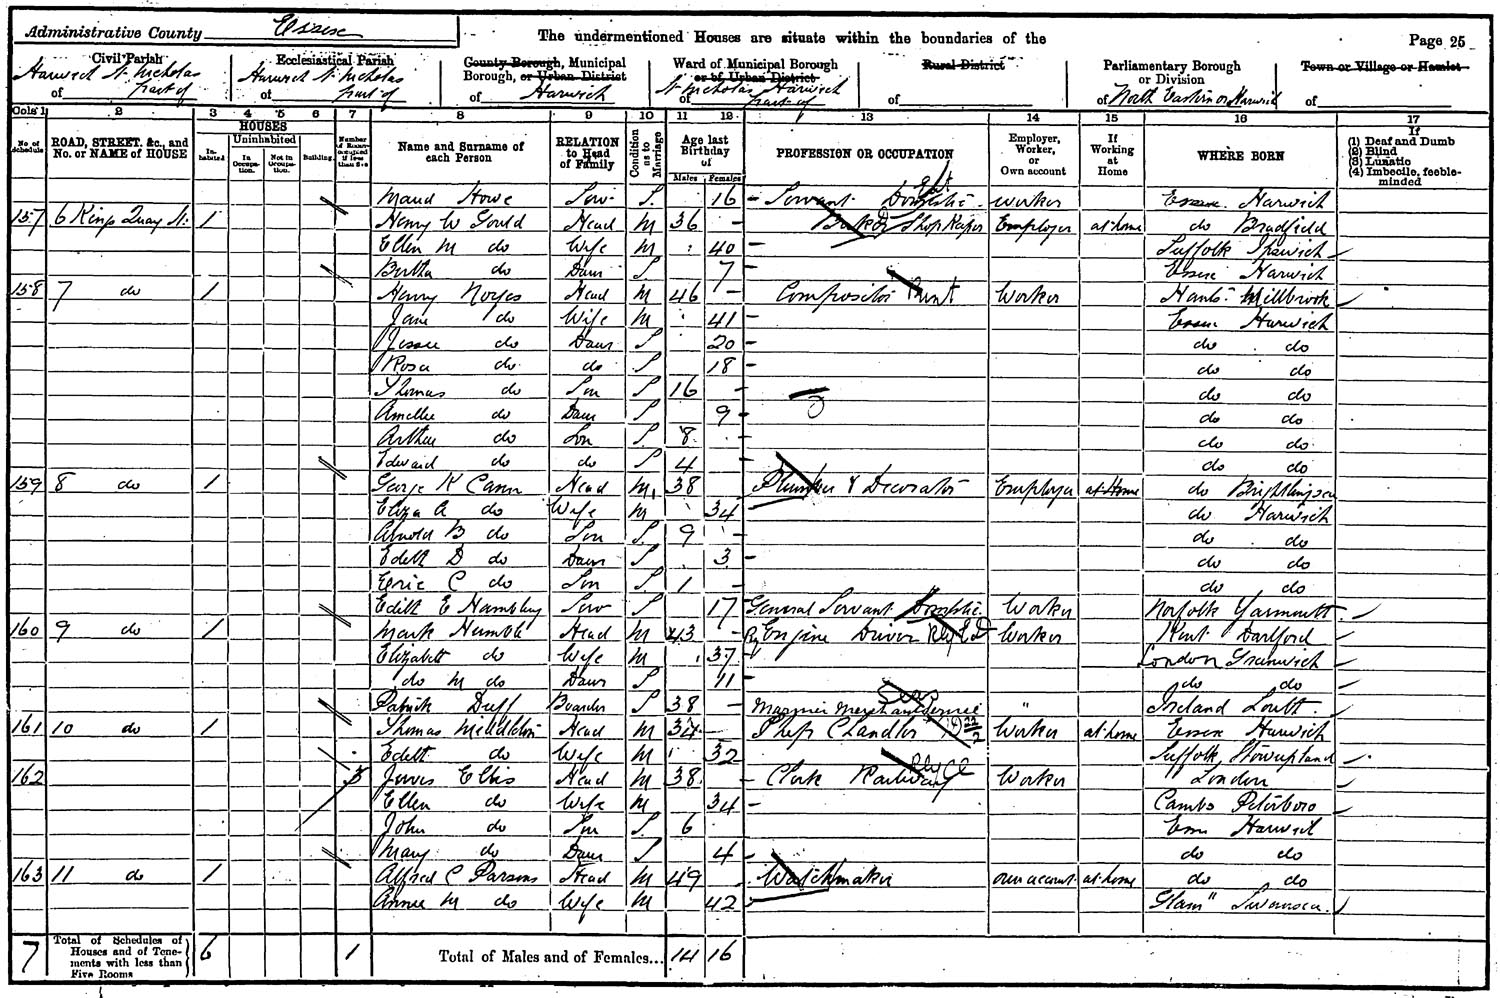 Administrative County Essex
The undermentioned Houses are situate within the boundaries of the
Page 25
Civil Parish
of Harwich St. Nicholas part of
Ecclesiastical Parish
of Harwich St. Nicholas part of
County Borough, Municipal
Borough, or Urban District
of Harwich
Ward of Municipal Borough
or of Urban District
of St Nicholas Harwich part of
Rural District
of
Parliamentary Borough
or Division
of North Eastern or Harwich
Town or Village or Hamlet
of
Cols 1 2 3 4 5 6 7 8 9 10 11 12 13 14 15 16 17
No. of Schedule
ROAD, STREET, &c., and No. or NAME of HOUSE
HOUSES
Inhabited
Uninhabited
In Occupation.
Not in Occupation.
Building.
Number of Rooms occupied if less than five
Name and Surname of each Person
RELATION to Head of Family
Condition as to Marriage
Age last Birthday of
Males Females
PROFESSION OR OCCUPATION
Employer, Worker, or Own account
If Working at Home
WHERE BORN
If
(1) Deaf and Dumb
(2) Blind
(3) Lunatic
(4) Imbecile, feeble-minded
Maud Howe Serv. S. 16 Servant Domestic worker Essex Harwich
157 6 Kings Quay St. 1 Henry W Gould Head M 36 Shop Keeper Employer at home do Bradfield
Ellen M do Wife M 40 Suffolk Ipswich
Bertha do Daur S 7 Essex Harwich
158 7 do 1 Henry Noyes Head M 46 Compositor Print Worker Hants Millbrook
Jane do Wife M 41 Essex Harwich
do Daur S 20 do do
Rosa do do S 18 do do
Thomas do Son S 16 do do
do Daur S 9 do do
Arthur do Son S 8 do do
Edward do do S 4 do do
159 8 do 1 George K Cann Head M 38 Plumber & Decorator Employer at Home do Brightlingsea
Eliza A do Wife M 34 do Harwich
Arnold B do Son S. 9 do do
Edith D do Daur S 3 do do
Eric C do Son S 1 do do
Edith E Hambling Serv S 17 General Servant Domestic Worker Norfolk Yarmouth
160 9 do 1 Mark Humble Head M 43 Engine Driver Worker Kent Dartford
Elizabeth do Wife M 37 London Greenwich
do M do Daur S 11 do do
Patrick Duff Boarder S 38 Mariner Merchant Service " Ireland Louth
161 10 do 1 Thomas Middleton Head M 34 Ships Chandler Worker at home Essex Harwich
Edith do Wife M 32 Suffolk, Stowupland
162 3 James Ellis Head M 38 Clerk Railway Worker London
Ellen do Wife M 34 Cambs Peterboro
John do Son S. 6 Essex Harwich
Mary do Daur S 4 do do
163 11 do 1 Alfred C Parsons Head M 49 Watchmaker own account at home do do
Annie M do Wife M 42 Glam" Swansea
7 Total of Schedules of Houses and of Tenements with less than Five Rooms 6 1 Total of Males and of Females... 14 16